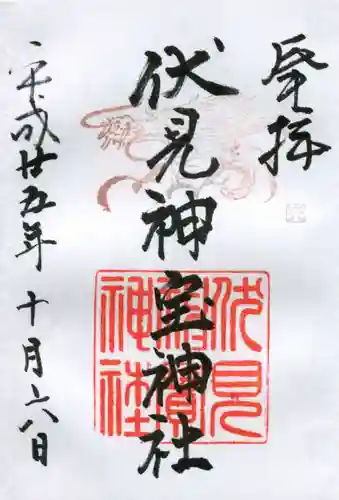 登拝
伏見神宝神社
平成廿五年十月六日
伏見
神寶
神社